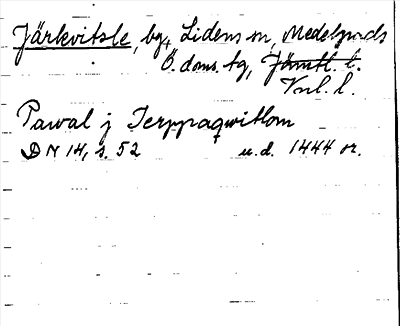 Järkvitsle, by, Lidens sn, Medelpads
Ö. doms. tg, Jämtl. l.
Vnl. l.
Pawal j Jerppaqwitlom
DN 14, s. 52 u.d. 1444 or.